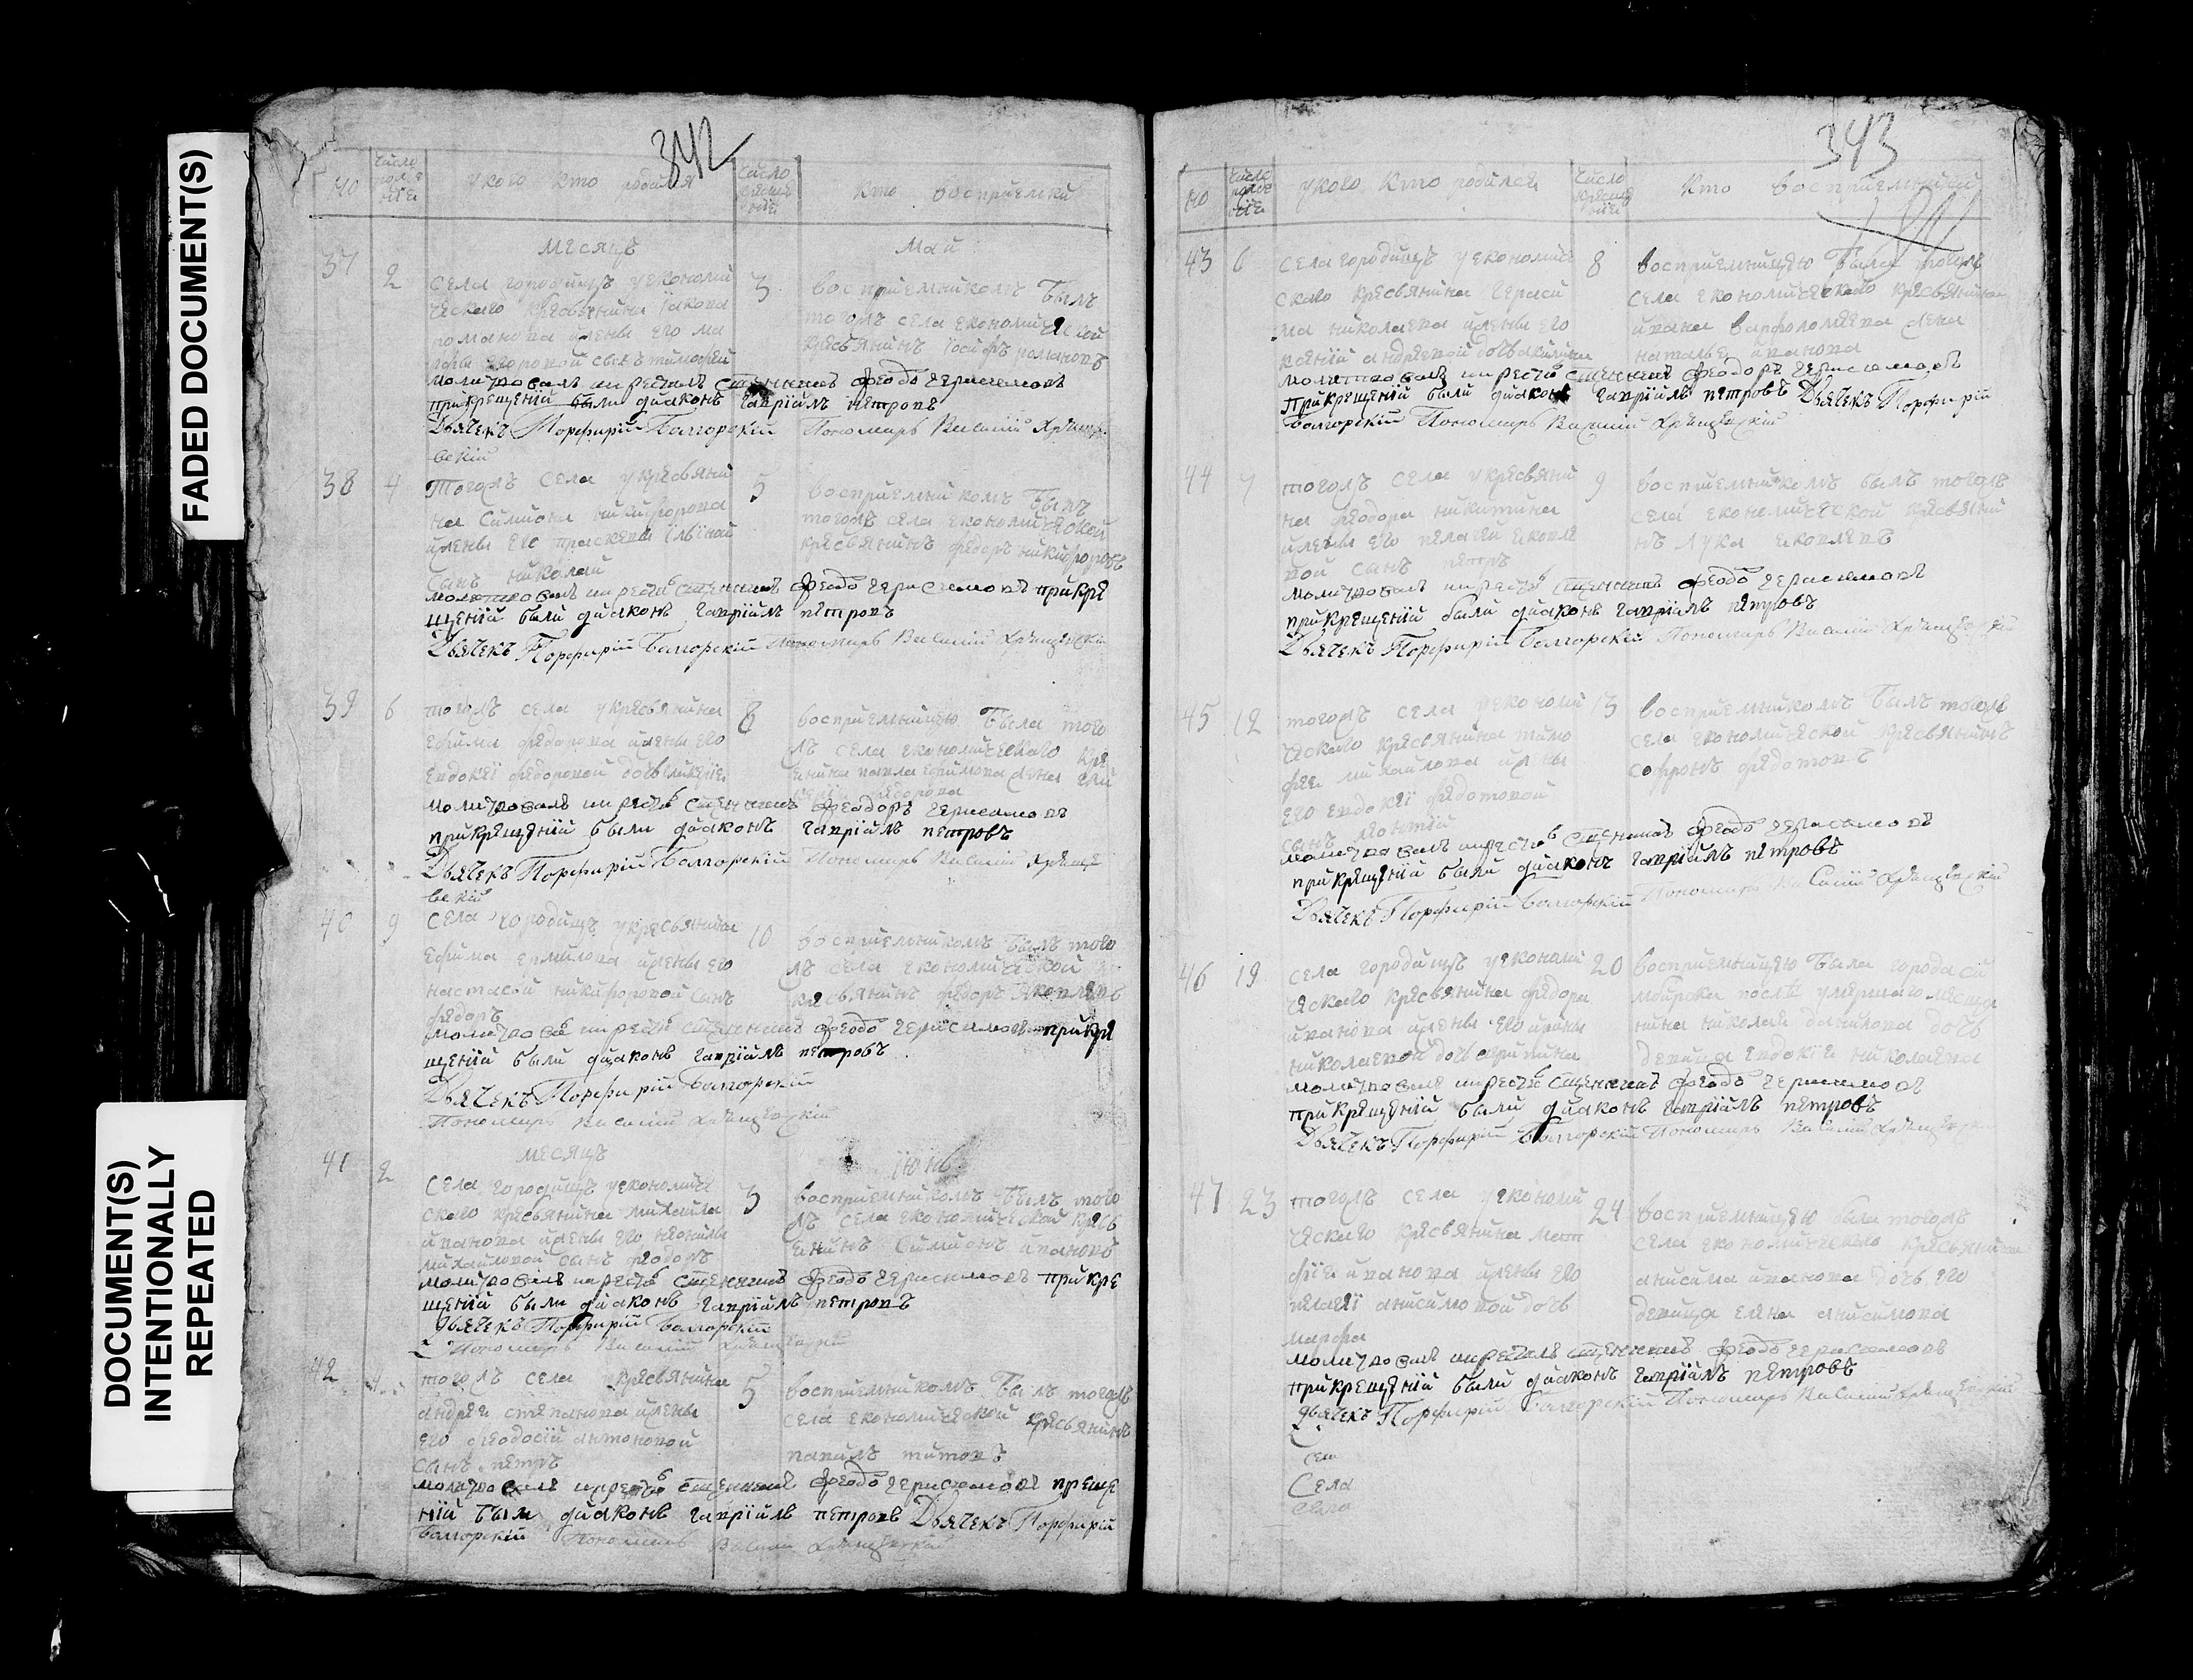 FADED DOCUMENT(S)
DOCUMENT(S)
INTENTIONALLY
REPEATED
342
НО
число рожденiе
у кого кто родился
число крещенiе
кто воспрiемники
месяцъ
Май
37
2
села городищъ уекономи
ческаго кресьянина iакова
романова iжены его ма
егоровой сынъ тимофей
3
воспрiемникомъ былъ
тогожъ села економической
кресьянинъ iосифъ романовъ
молитвовалъ икрестилъ сщенникъ феодо герасимовъ
прикрещенiи были дiаконъ гаврiилъ петровъ
Дьячекъ Порфирiй Пономарь Василий
вскiй
38
4
Тогожъ села укресьяни
на Симиона никифорова
iжены его прасковьи iльiной
сынъ николай
5
воспрiемникомъ былъ
тогожъ села економической
кресьянинъ федоръ никифоровъ
молитвовалъ икрестъ сщенникъ феодо герасимовъ прикре
щенiи были дiаконъ гаврiилъ петровъ
Дьячекъ Порфирiй Пономарь Василий
39
6
тогожъ села укресьянина
ефима федорова iжены его
евдокеi федоровой дочь
8
воспрiемницею была того
жъ села економическаго кре
янина павла ефимова жена
федорова
молитвовалъ икрестъ сщенникъ феодоръ герасимовъ
прикрещенiи были дiаконъ гаврiилъ петровъ
Дьячекъ Порфирiй Пономарь Василий
вскiй
40
9
села городищъ укресьянина
ефима ермилова iжены его
настасьи никифоровой сынъ
федоръ
10
воспрiемникомъ былъ того
жъ села економической
кресьянинъ федоръ яковлевъ
молитвова икрестъ сщенникъ феодо герасимовъ прикре
щенiи были дiаконъ гаврiилъ петровъ
Дьячекъ Порфирiй
Пономарь Василий
месяцъ
iюнь
41
2
села городищъ уекономиче
скаго кресьянина михаила
iванова iжены его неонилы
михайловой сынъ федоръ
3
воспрiемникомъ былъ того
жъ села економической кресь
янинъ симионъ iвановъ
молитвовалъ икрестъ сщенникъ феодо герасимовъ прикре
щенiи были дiаконъ гаврiилъ петровъ
Дьячекъ Порфирiй
Пономарь Василий
42
4
тогожъ села укресьянина
андрея степанова iжены
его феодосiи антоновой
сынъ петръ
5
воспрiемникомъ былъ тогожъ
села економической кресьянинъ
павилъ титовъ
молитвовалъ икрестъ сщенникъ феодо герасимовъ
нiи были дiаконъ гаврiилъ петровъ Дьячекъ Порфирiй
Пономарь Василий
343
НО
число рожденiе
у кого кто родился
число крещенiе
кто воспрiемники
43
6
села городищъ уекономиче
скаго кресьянина гераси
ма николаева iжены его
андреевой дочь акилина
8
воспрiемницею была тогожъ
села економическаго кресьянина
iвана варфоломеева жена
наталья iванова
молитвовалъ икрестъ сщенникъ феодоръ герасимовъ
прикрещенiи были дiаконъ гаврiилъ петровъ Дьячекъ Порфирiй
Пономарь Василий
44
7
тогожъ села укресьяни
на федора никитина
iжены его пелагеи яковле
вой сынъ петръ
9
воспрiемникомъ былъ тогожъ
села економической кресьяни
нъ лука яковлевъ
молитвовалъ икрестъ сщенникъ феодо герасимовъ
прикрещенiи были дiаконъ гаврiилъ петровъ
Дьячекъ Порфирiй Пономарь Василий
45
12
тогожъ села уекономи
ческаго кресьянина тимо
фея михайлова iжены
его евдокеi федотовой
сынъ леонтiй
13
воспрiемникомъ былъ тогожъ
села економической кресьянинъ
софронъ федотовъ
молитвовалъ икрестъ сщенникъ феодо герасимовъ
прикрещенiи были дiаконъ гаврiилъ петровъ
Дьячекъ Порфирiй Пономарь Василий
46
19
села городищъ уекономи
ческаго кресьянина федора
iванова iжены его iрины
николаевой дочь агрипина
20
воспрiемницею была города си
мбирска после умершаго меща
нина николая данилова дочь
девица евдокiя николаева
молитвовалъ икрестъ сщенникъ феодо герасимовъ
прикрещенiи были дiаконъ гаврiилъ петровъ
Дьячекъ Порфирiй Пономарь Василий
47
23
тогожъ села уекономи
ческаго кресьянина мат
фiя iванова iжены его
пелагеi анисимовой дочь
марфа
24
воспрiемницею была тогожъ
села економическаго кресьянина
анисима iванова дочь его
девица елена анисимова
молитвовалъ икрестилъ сщенникъ феодо герасимовъ
прикрещенiи были дiаконъ гаврiилъ петровъ
Дьячекъ Порфирiй Пономарь Василий
сем
Села